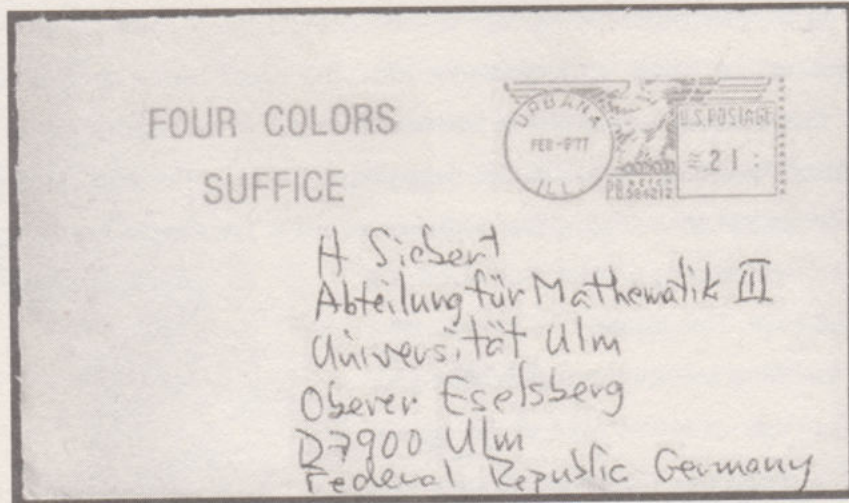 FOUR COLORS
SUFFICE
URBANA
FEB-8'77
ILL.
U.S. POSTAGE
.21
H Siebert
Abteilung für Mathematik III
Universität Ulm
Oberer Eselsberg
D7900 Ulm
Federal Republic Germany